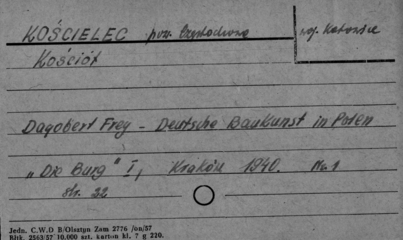 KOŚCIELEC pow. Częstochowa woj. Katowice
Kościół
Dagobert Frey - Deutsche Baukunst in Polen
"Die Burg" I, Kraków 1940. Nr. 1
str. 22
Jedn. C.W.D B/Olsztyn Zam 2776 /on/57
Bltk. 2563/57 10.000 szt. karton kl. 7 g 220.